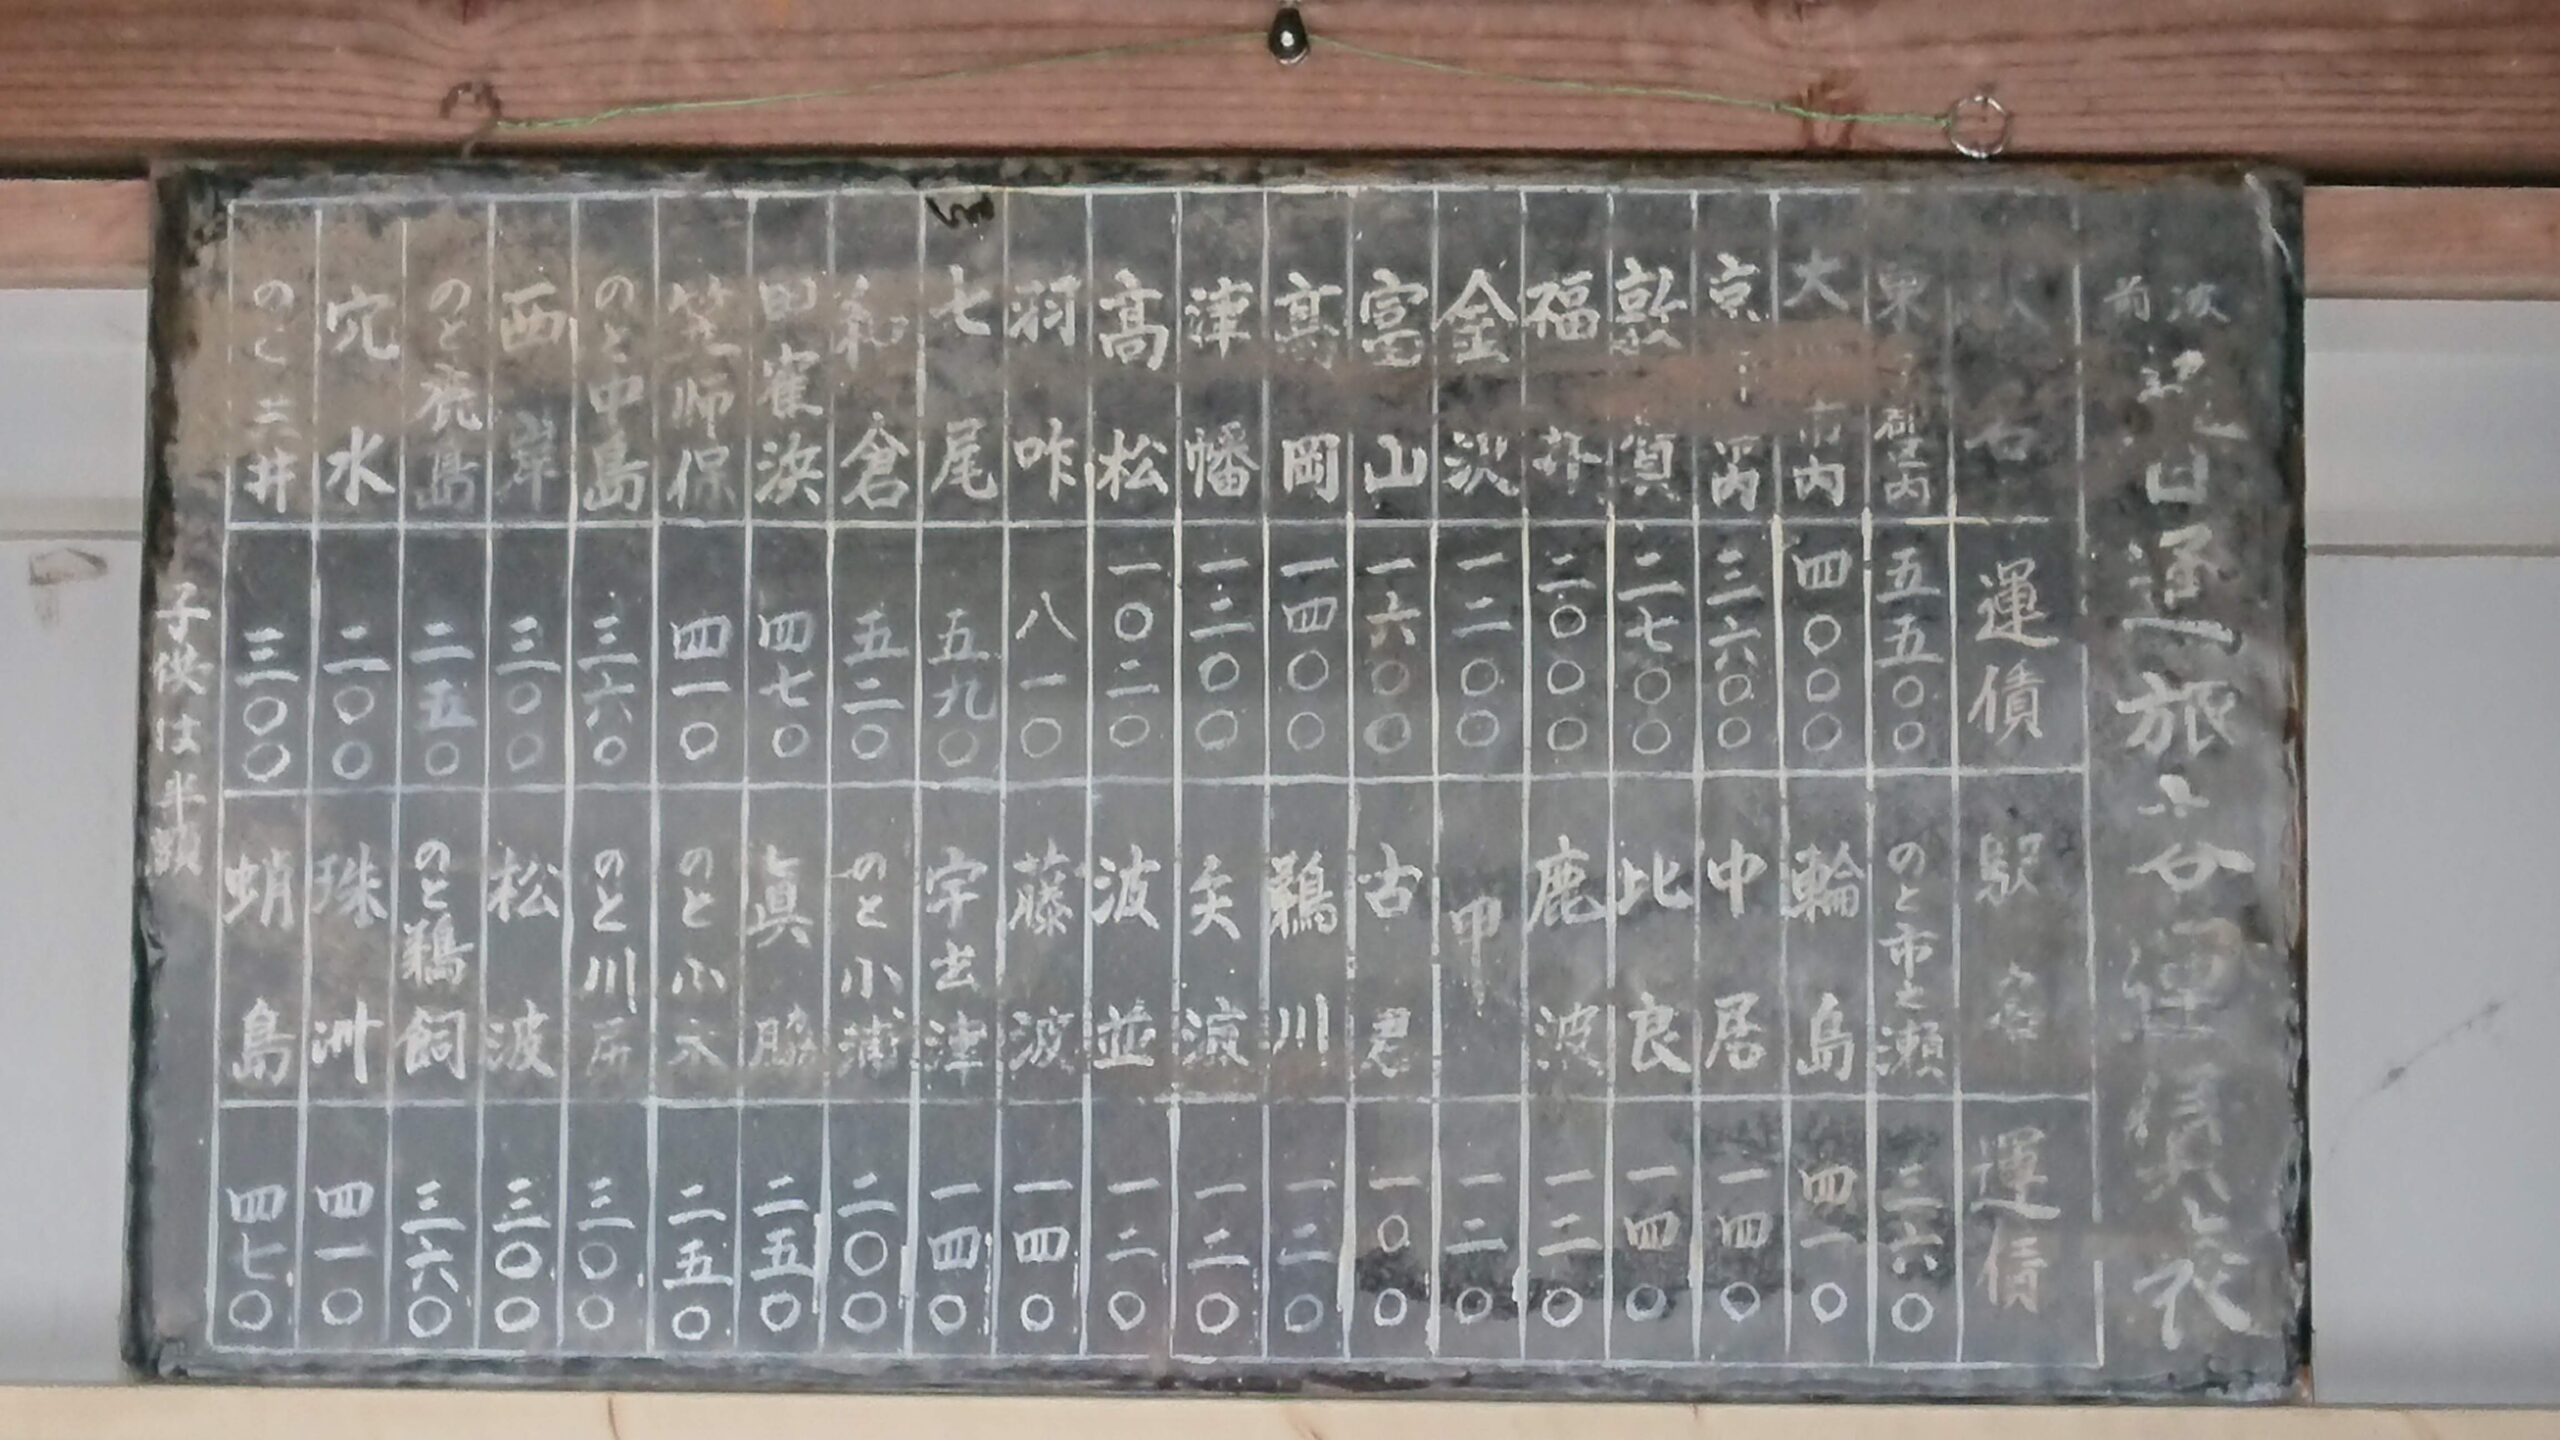 波
前
日通旅
表
名
運債
駅名
運債
五五〇〇
のと市之瀬
三六〇
大 市内
四〇〇〇
輪島
四一〇
京 市内
三六〇〇
中居
一四〇
敦賀
二七〇〇
比良
一四〇
福井
二〇〇〇
鹿波
一二〇
金沢
一二〇〇
甲
一二〇
富山
一六〇〇
古君
一〇〇
高岡
一四〇〇
鵜川
一二〇
津幡
一二〇〇
矢波
一二〇
高松
一〇二〇
波並
一二〇
羽咋
八一〇
藤波
一四〇
七尾
五九〇
宇出津
一四〇
和倉
五二〇
のと小浦
二〇〇
田雀浜
四七〇
眞脇
二五〇
笠师保
四一〇
のと小木
二五〇
のと中島
三六〇
のと川尻
三〇〇
西岸
三〇〇
松波
三〇〇
のと鹿島
二五〇
のと鵜飼
三六〇
穴水
二〇〇
珠洲
四一〇
のと三井
三〇〇
蛸島
四七〇
子供は半額